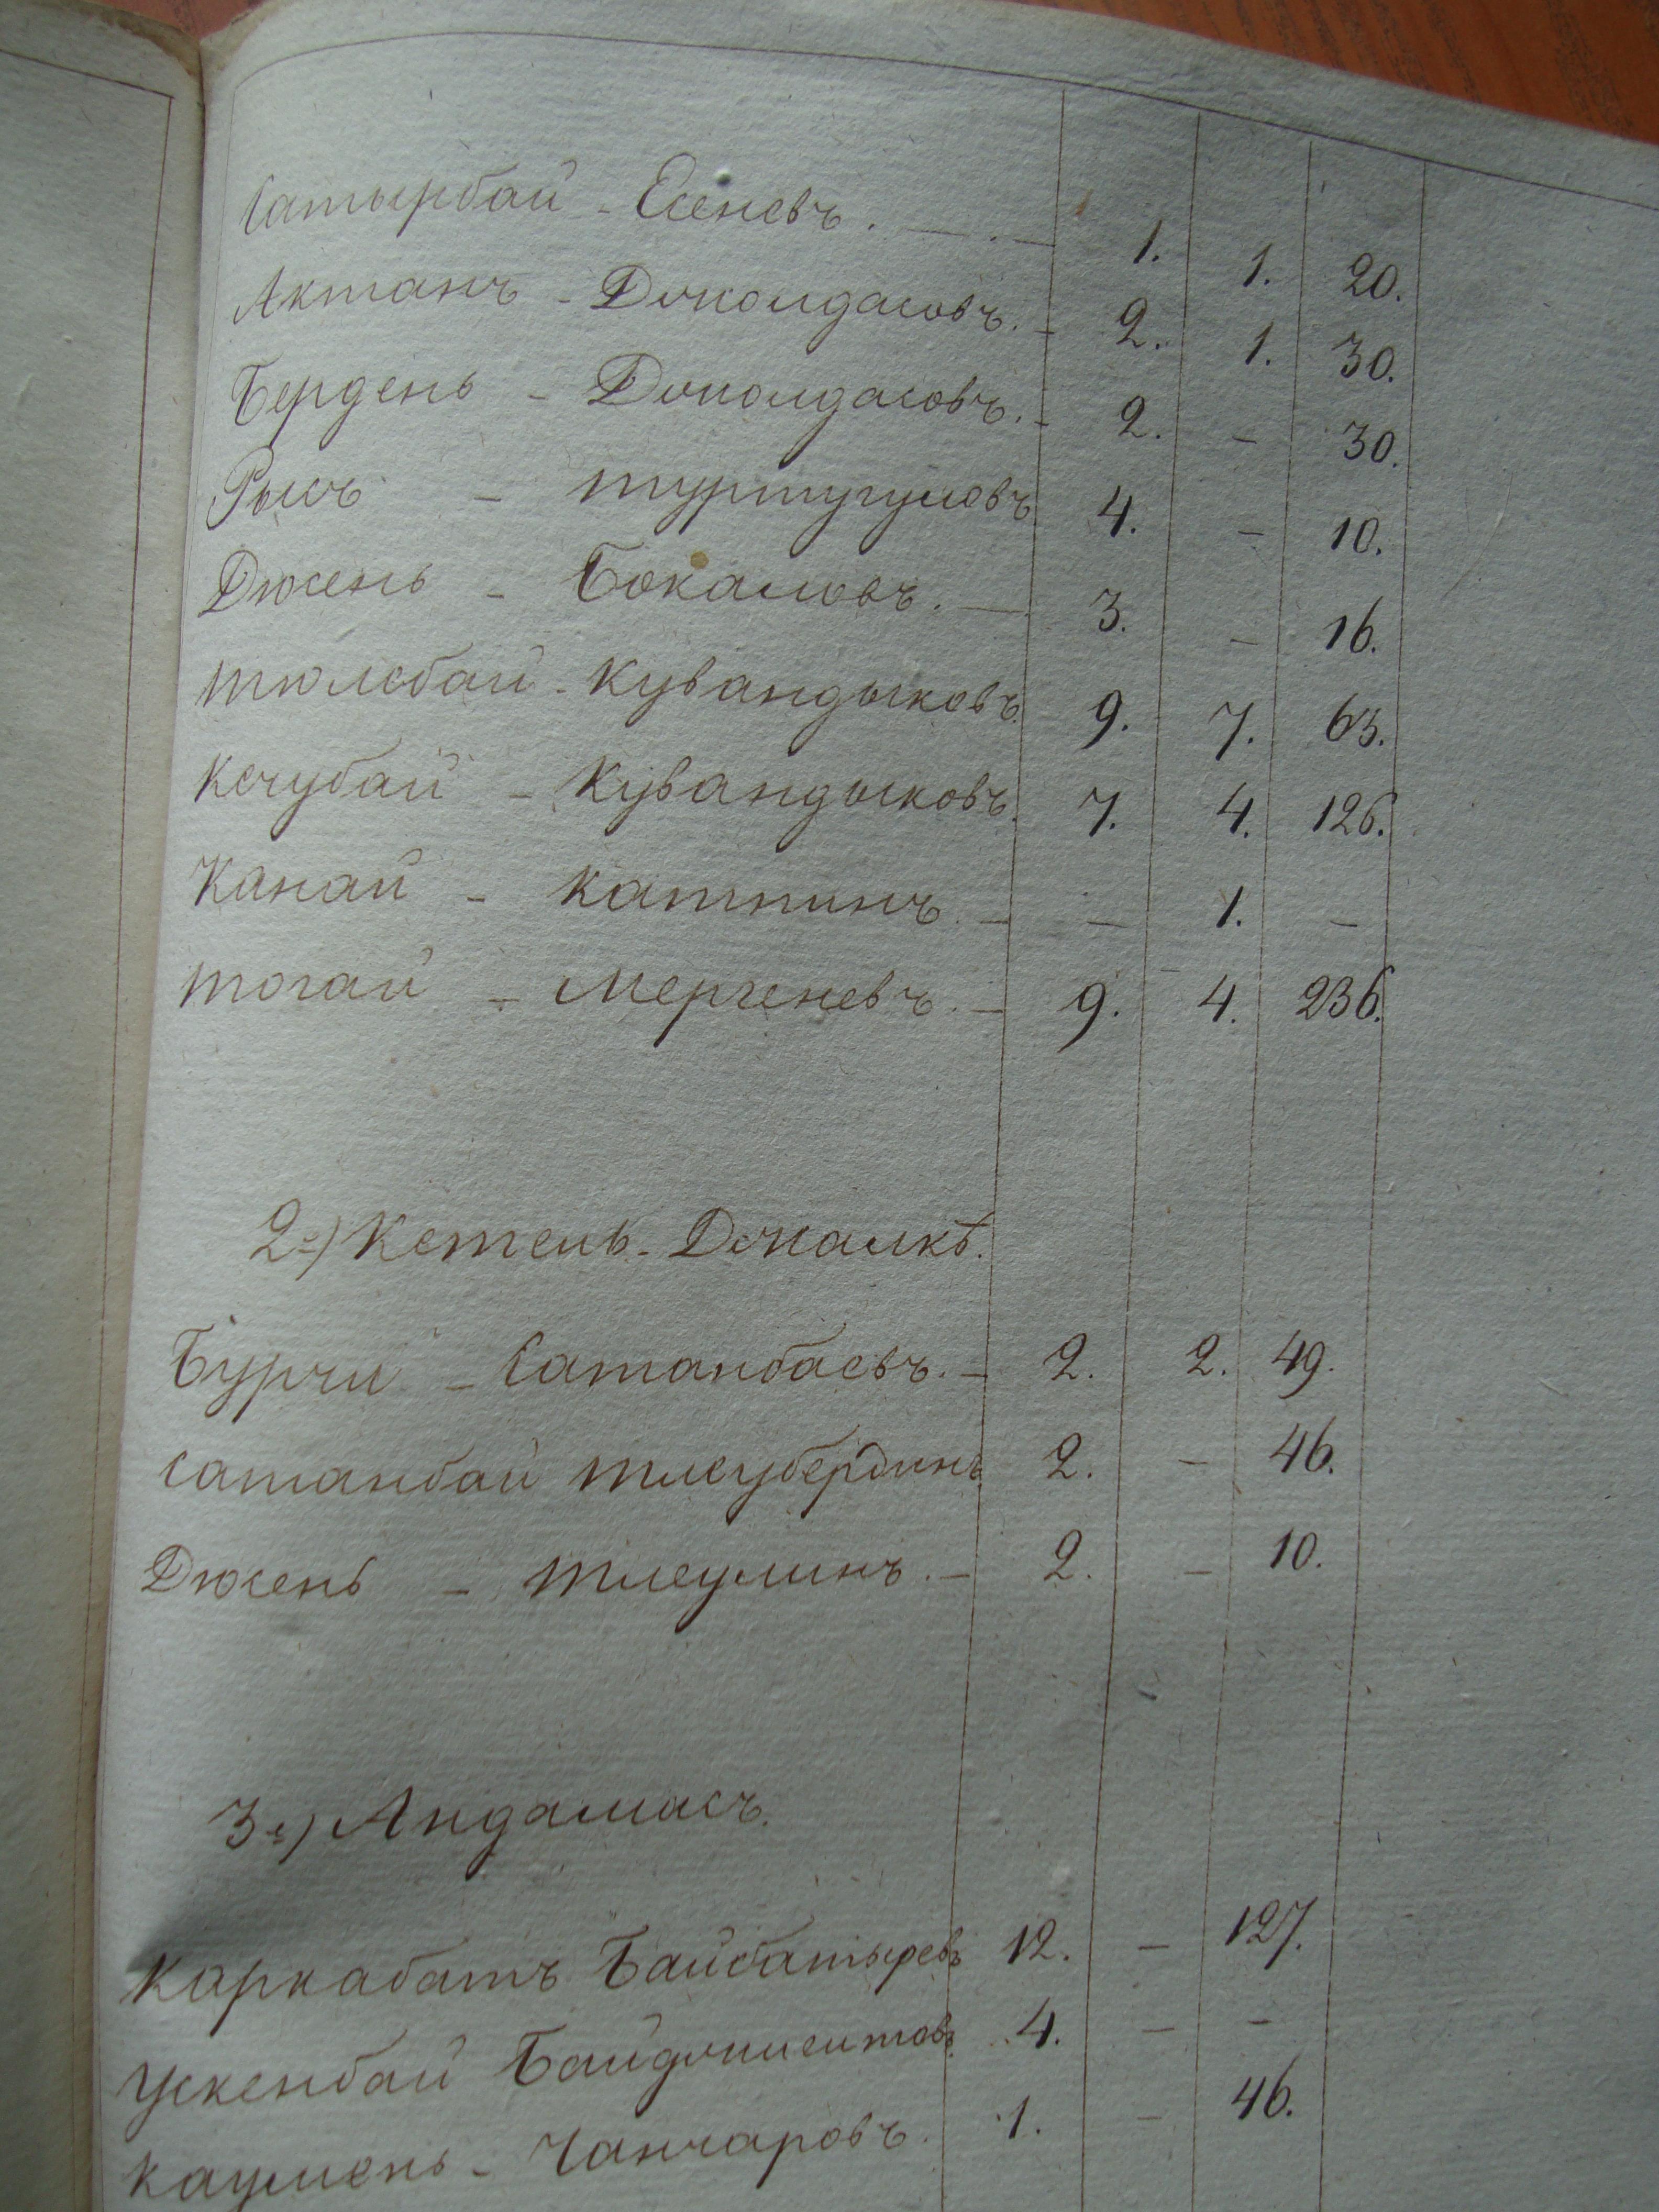 Сатырбай - Есеневъ. 1. 1. 20.
Актанъ - Джолдасовъ. - 2. 1. 30.
Бердень - Джолдасовъ. - 2. - 30.
Рысъ - Туртугуловъ 4. - 10.
Дюсень - Бокаловъ. 3. - 16.
Тюлебай - Кувандыковъ. 9. 7. 63.
Кочубай - Кувандыковъ. 7. 4. 126.
Канай - - 1. -
Тогай - Мергеневъ. - 9. 4. 236.
2е) Кетель - Джалкѣ.
Бурчи - Сатанбаевъ. - 2. 2. 49.
Сатанбай Тлеубердинъ 2. - 46.
Дюсень - Тлеулинъ. - 2. - 10.
3е) Андамасъ.
Каркабатъ Байбатыревъ 12. - 127.
Ускенбай 4. - -
Каумень - Чанчаровъ. 1. - 46.